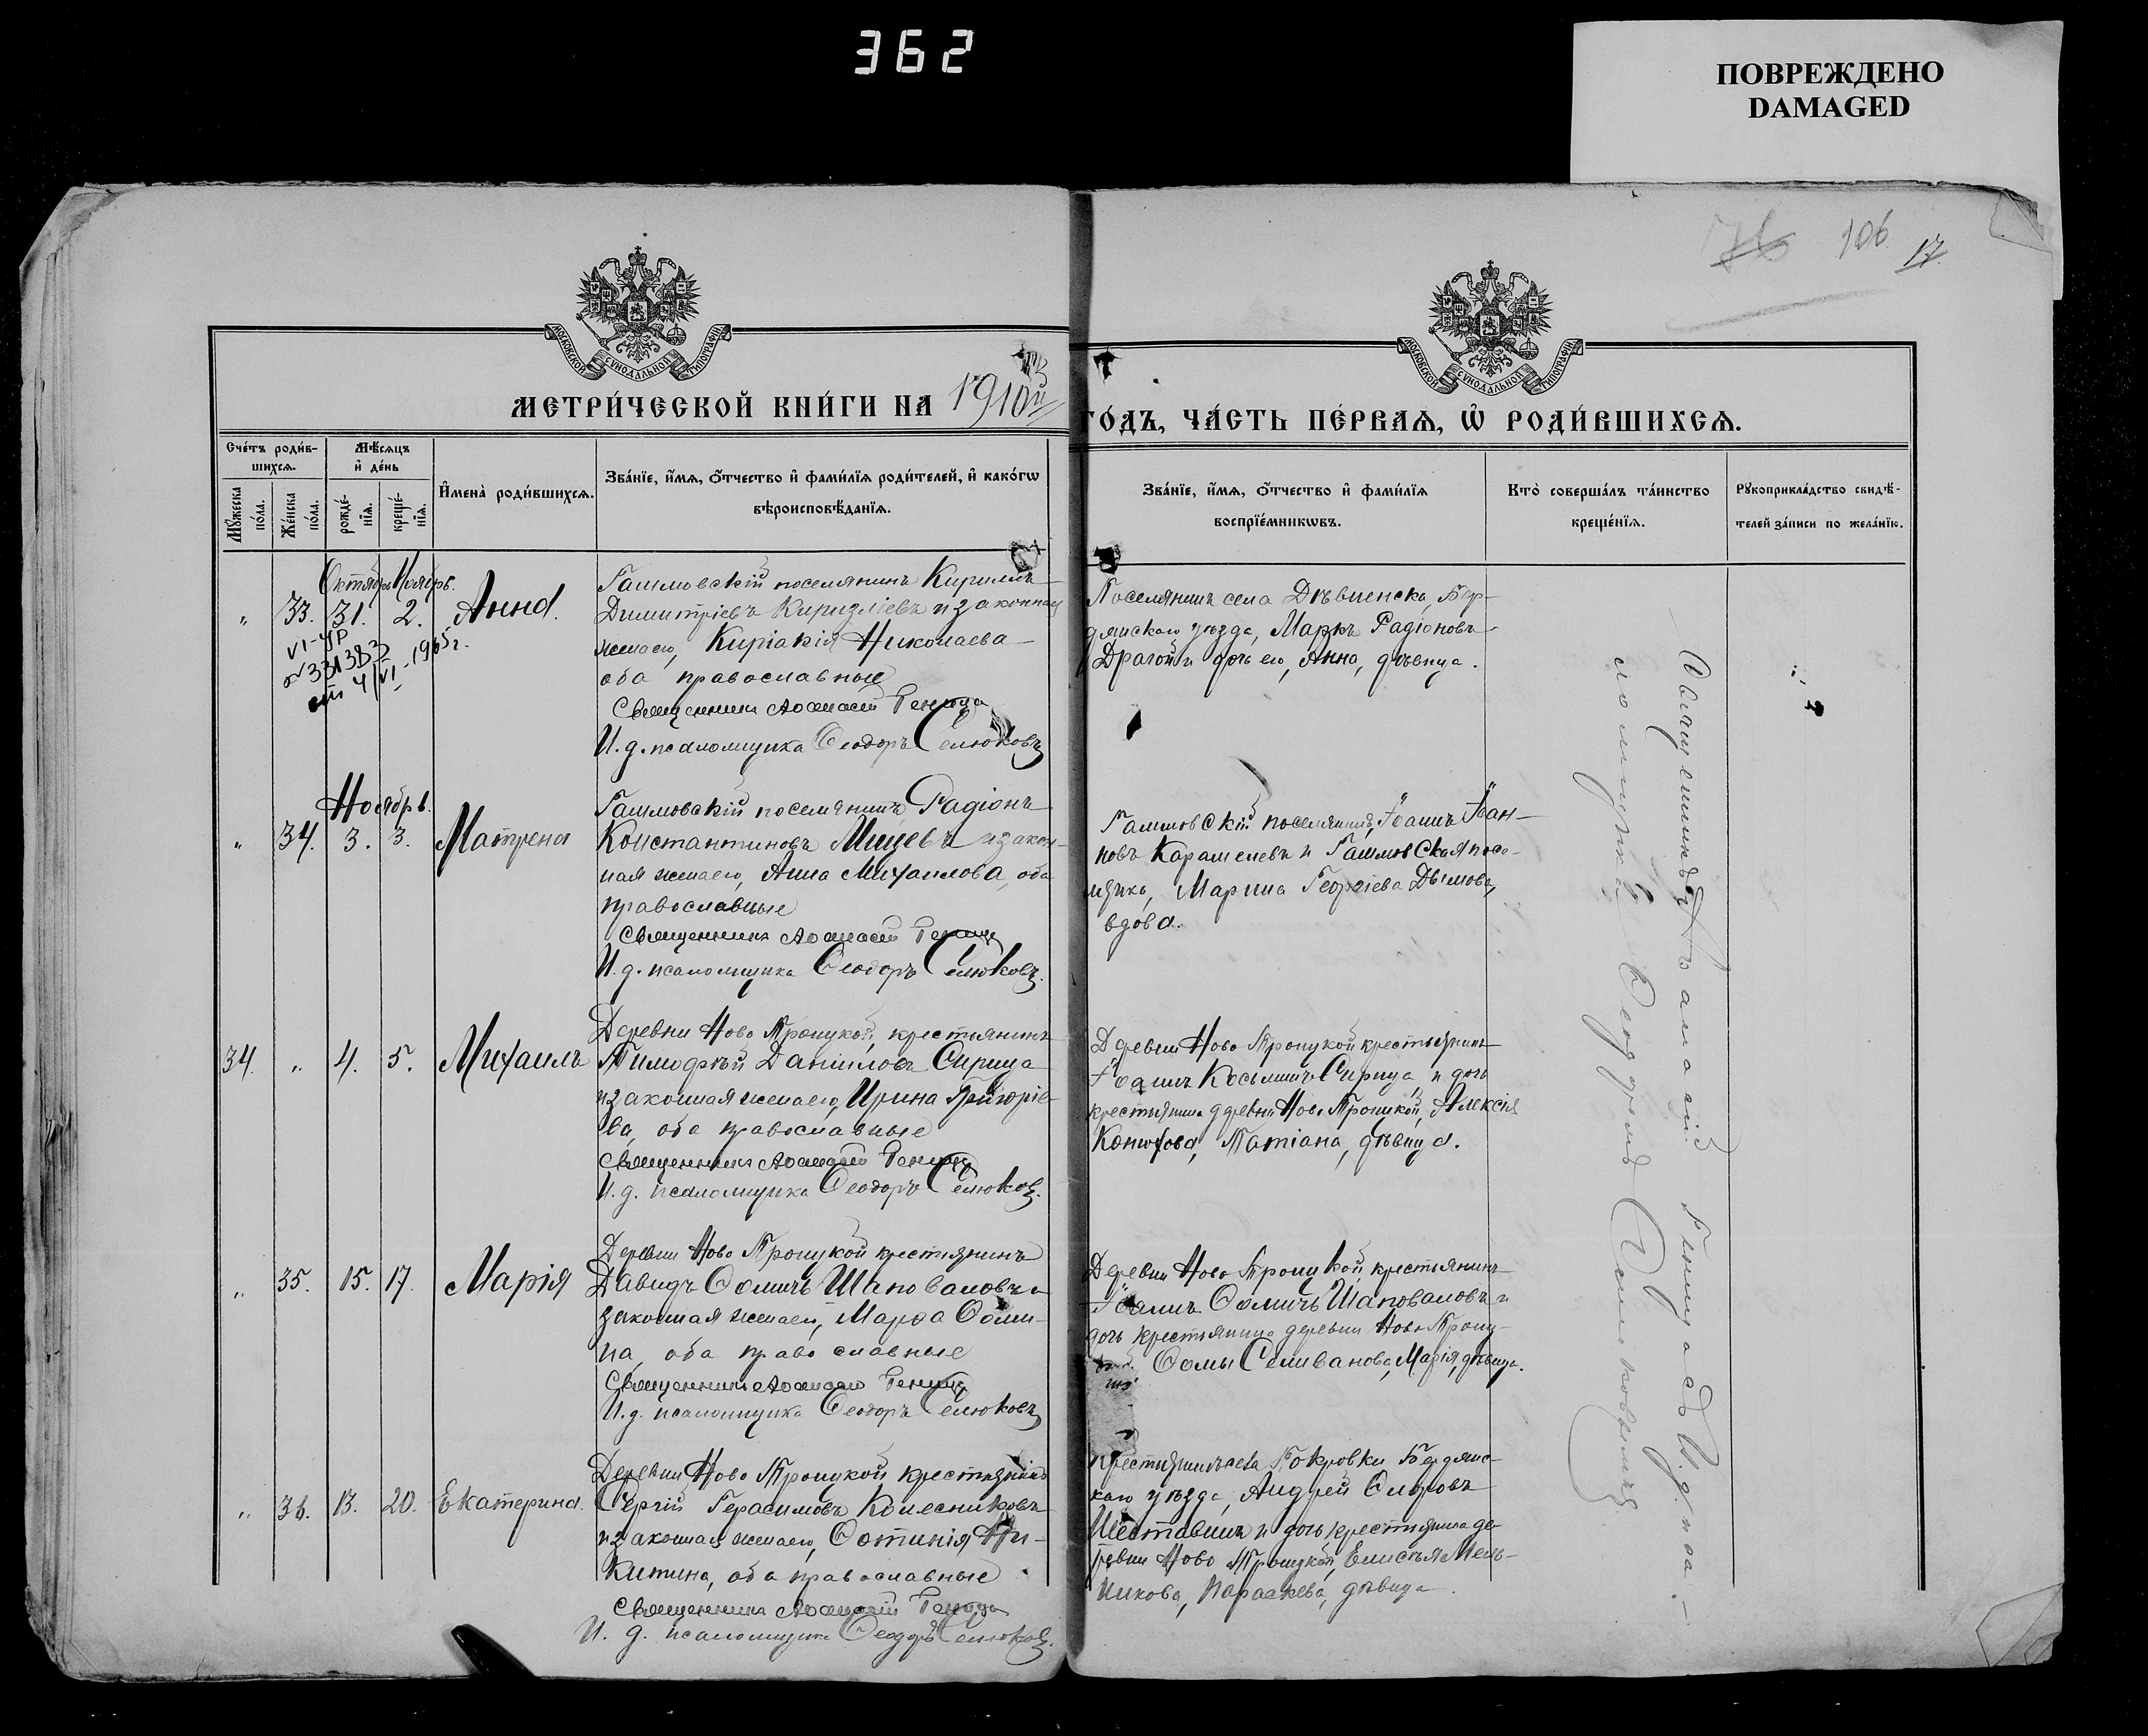 362
ПОВРЕЖДЕНО
DAMAGED
106
17.
МОСКОВСКОЙ СѴНОДАЛЬНОЙ ТИПОГРАФІИ
МОСКОВСКОЙ СѴНОДАЛЬНОЙ ТИПОГРАФІИ
МЕТРИ́ЧЕСКОЙ КНИ́ГИ НА 1910й
ГО́ДЪ, ЧА́СТЬ ПЕ́РВАѦ, Ѡ҆ РОДИ́ВШИХСѦ.
Сче́тъ роди́в-
шихсѧ.
Мꙋ́жеска по́ла.
Же́нска по́ла.
Мѣ́сѧцъ
и҆ де́нь
рожде́-
нїѧ.
креще́-
нїѧ.
И҆мена̀ роди́вшихсѧ.
Зва́нїе, и҆́мѧ, ѻ҆́тчество и҆ фами́лїѧ роди́телей, и҆ како́гѡ
вѣроисповѣ́данїѧ.
Зва́нїе, и҆́мѧ, ѻ҆́тчество и҆ фами́лїѧ
воспрїе́мникѡвъ.
Кто̀ соверша́лъ та́инство
креще́нїѧ.
Рꙋкоприкла́дство свидѣ́-
телей за́писи по жела́нїю.
Октябрь Ноябрь.
„ 33. 31. 2. Анна.
VI-УР
№331383
от 4/VI-1965г.
поселянинъ Кириллъ
Димитріевъ и законная
жена его, Киріакія Николаева
оба православные
Священникъ Аѳанасій
И. д. псаломщика Ѳеодоръ Селюковъ
Поселянинъ села Бер-
дянскаго уѣзда, Маркъ Радіоновъ
Драгой и дочь его, Анна, дѣвица.
Ноябрь.
„ 34. 3. 3. Матрена
поселянинъ Радіонъ
Константиновъ Мицевъ и закон-
ная жена его, Анна Михаилова, оба
православные
Священникъ Аѳанасій
И. д. псаломщика Ѳеодоръ Селюковъ.
поселянинъ, Іоаннъ Іоан-
новъ и посе-
лянка, Марина Георгіева Дымова,
вдова.
34. „ 4. 5. Михаилъ
Деревни Ново Троицкой, крестьянинъ
Тимофѣй Даніиловъ Сирица
и законная жена его, Ирина Григорiе-
ва, оба православные
Священникъ Аѳанасій
И. д. псаломщика Ѳеодоръ Селюковъ.
Деревни Ново Троицкой крестьянинъ
Іоаннъ Косьминъ Сирица и дочь
крестьянина деревни Ново Троицкой, Алексія
Конюхова, Татіана, дѣвица.
„ 35. 15. 17. Марія
Деревни Ново Троицкой крестьянинъ
Давидъ Ѳоминъ Шаповаловъ и
законная жена его, Марѳа Ѳоми-
на, оба православные
Священникъ Аѳанасій
И. д. псаломщика Ѳеодоръ Селюковъ
Деревни Ново Троицкой, крестьянинъ
Іоаннъ Ѳоминъ Шаповаловъ и
дочь крестьянина деревни Ново Троиц-
Ѳомы Селиванова, Марія, дѣвица.
„ 36. 13. 20. Екатерина.
Деревни Ново Троицкой крестьянинъ
Сергій Герасимовъ Колесниковъ
и законная жена его, Фотинія Ни-
китина, оба православные
Священникъ Аѳанасій
И. д. псаломщика Ѳеодоръ Селюковъ.
Крестьянинъ села Покровки Бердянс-
каго уѣзда, Андрей
и дочь крестьянина де-
ревни Ново Троицкой, Елисѣя Мель-
никова, Параскева, дѣвица.
Священникъ Аѳанасій съ И. д. пса-
ломщика Ѳеодоромъ Селюковымъ